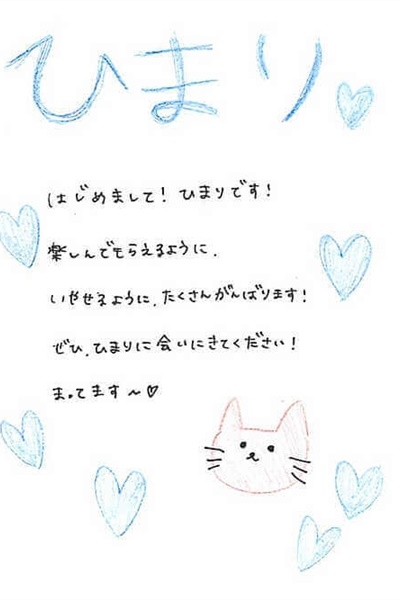 ひまり
はじめまして！ひまりです！
楽しんでもらえるように、
いやせるように、たくさんがんばります！
ぜひ、ひまりに会いにきてください！
まってます～♡